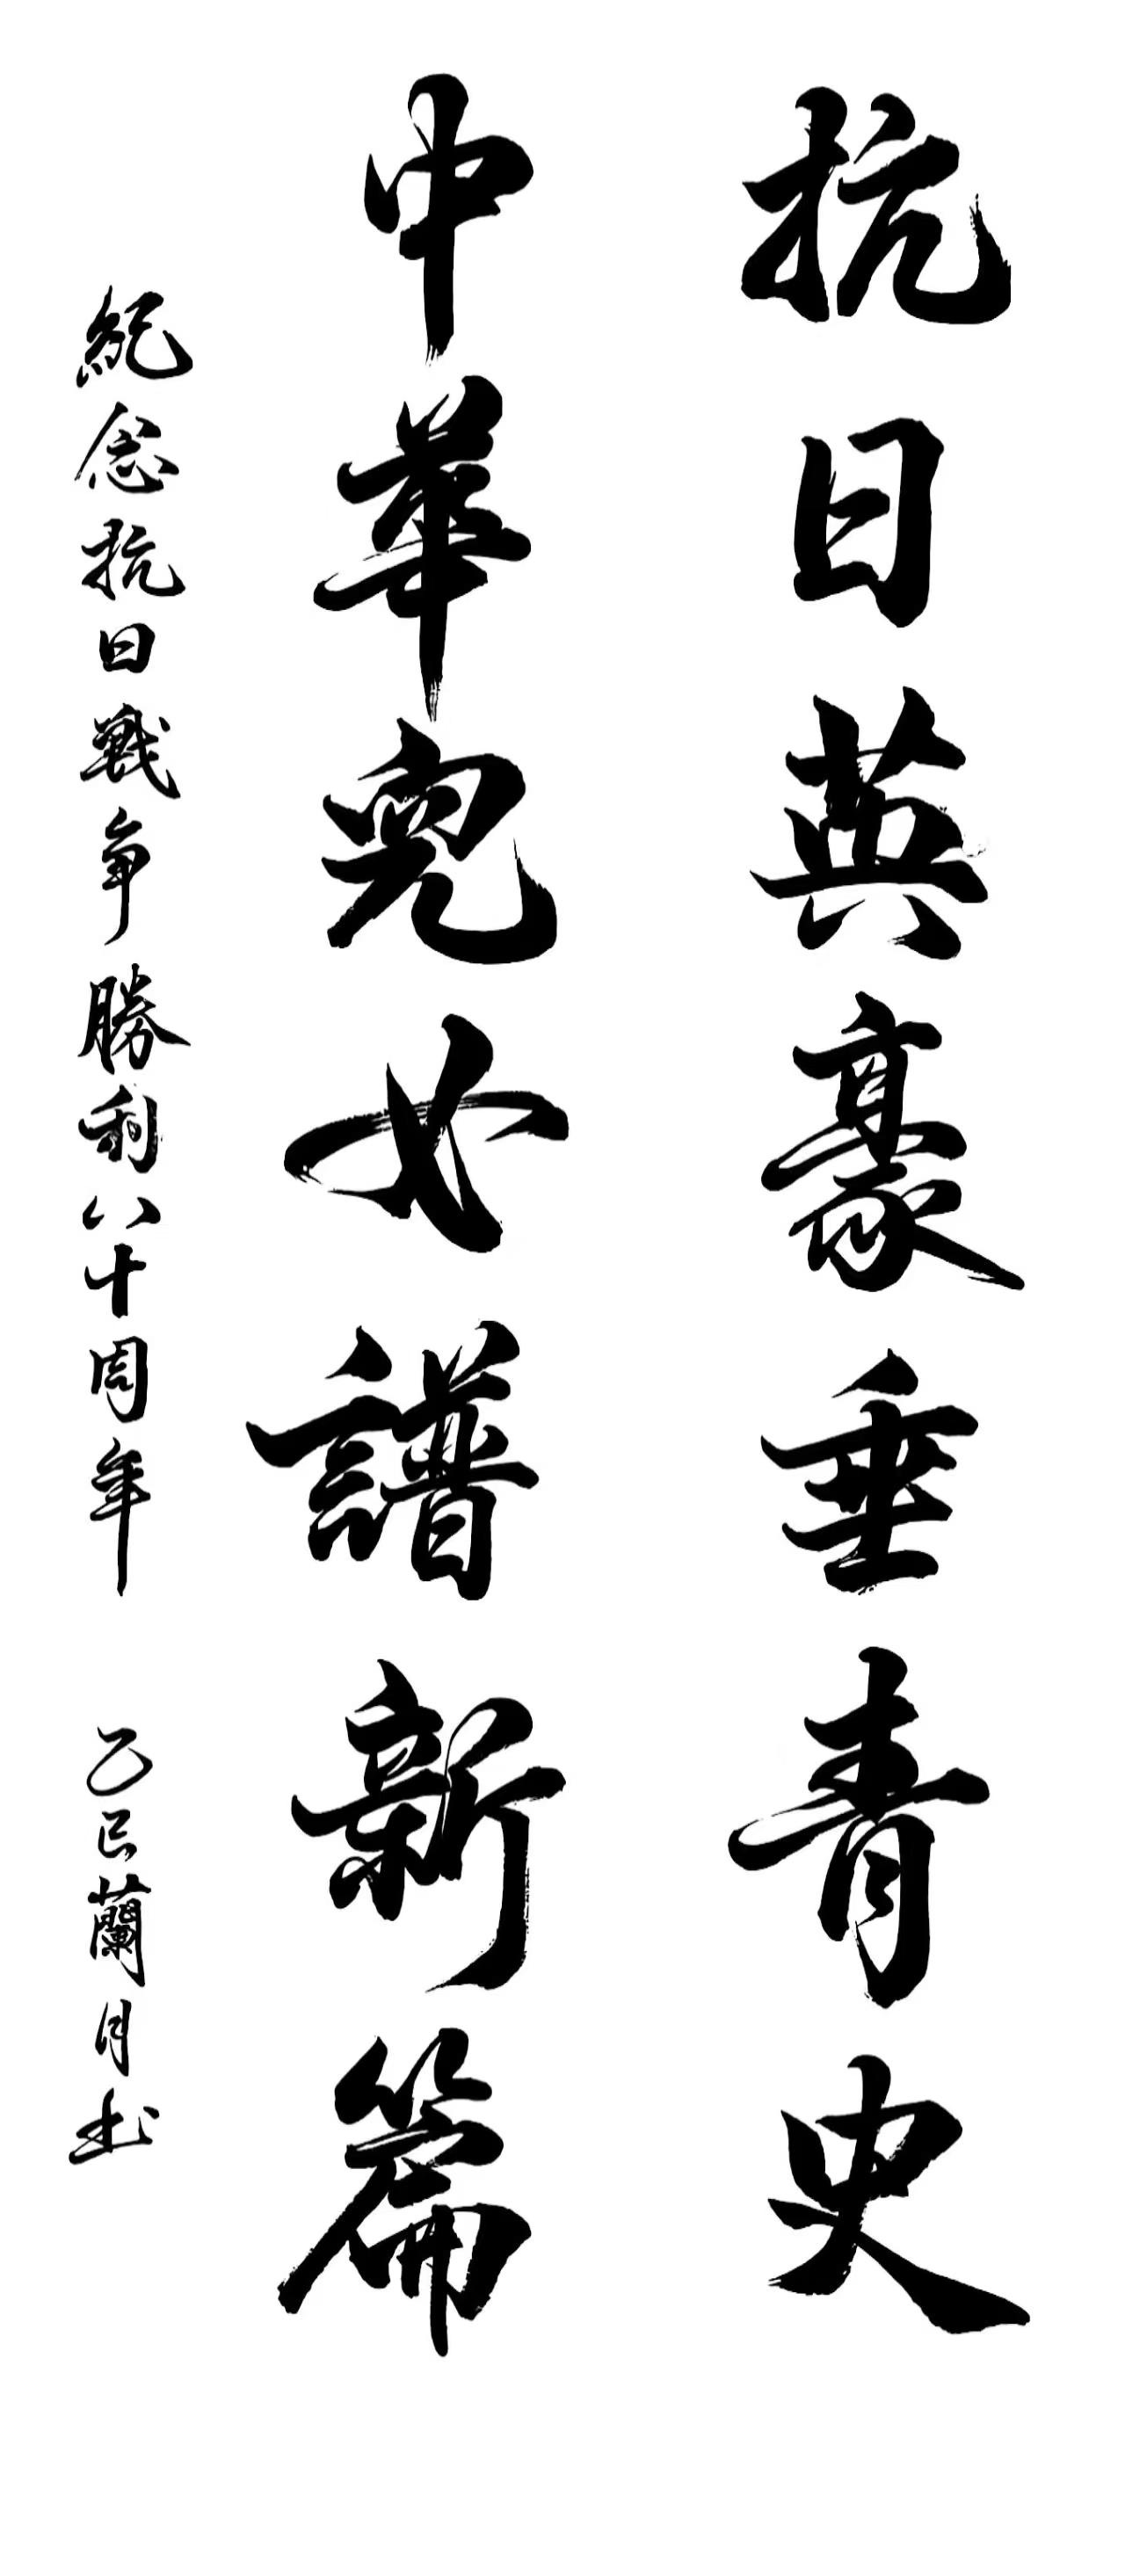 抗日英豪垂青史
中華兒女譜新篇
紀念抗日戰爭勝利八十周年 乙巳蘭月书